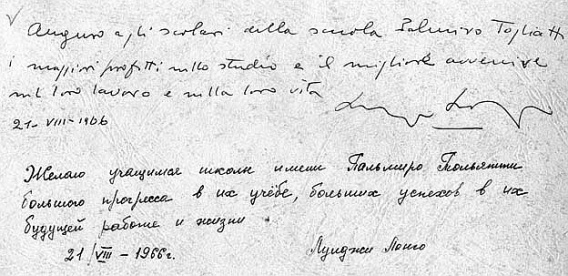 Auguro agli scolari della scuola Palmiro Togliatti
i maggiori profitti nello studio e il migliore avvenire
nel loro lavoro e nella loro vita
21-VIII-1966
Желаю учащимся школы имени Пальмиро Тольятти
большого прогресса в их учёбе, больших успехов в их
будущей работе и жизни.
21/VIII - 1966г. Луиджи Лонго